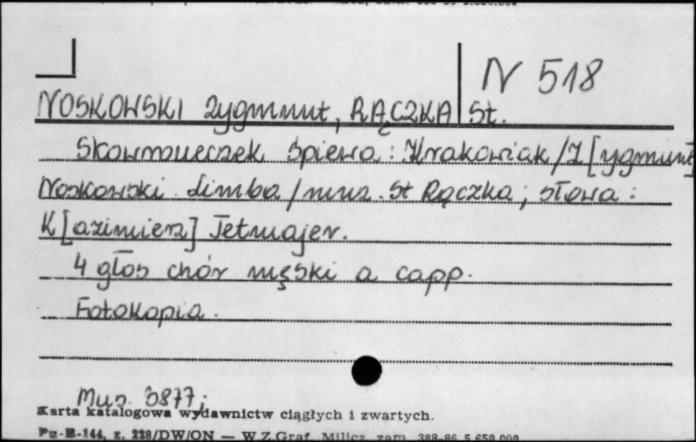 N 518
NOSKOWSKI Zygmunt, RĄCZKA St.
Skowroneczek śpiewa : Krakowiak / Z[ygmunt]
Noskowski. Limba / muz. St Rączka ; słowa :
K[azimierz] Tetmajer.
4 głos chór męski a capp.
Fotokopia.
Mus. 3877;
Karta katalogowa wydawnictw ciągłych i zwartych.
Pu-B-144, z. 228/DW/ON — W.Z.Graf. Milicz, zam. 388-86 5.650.000